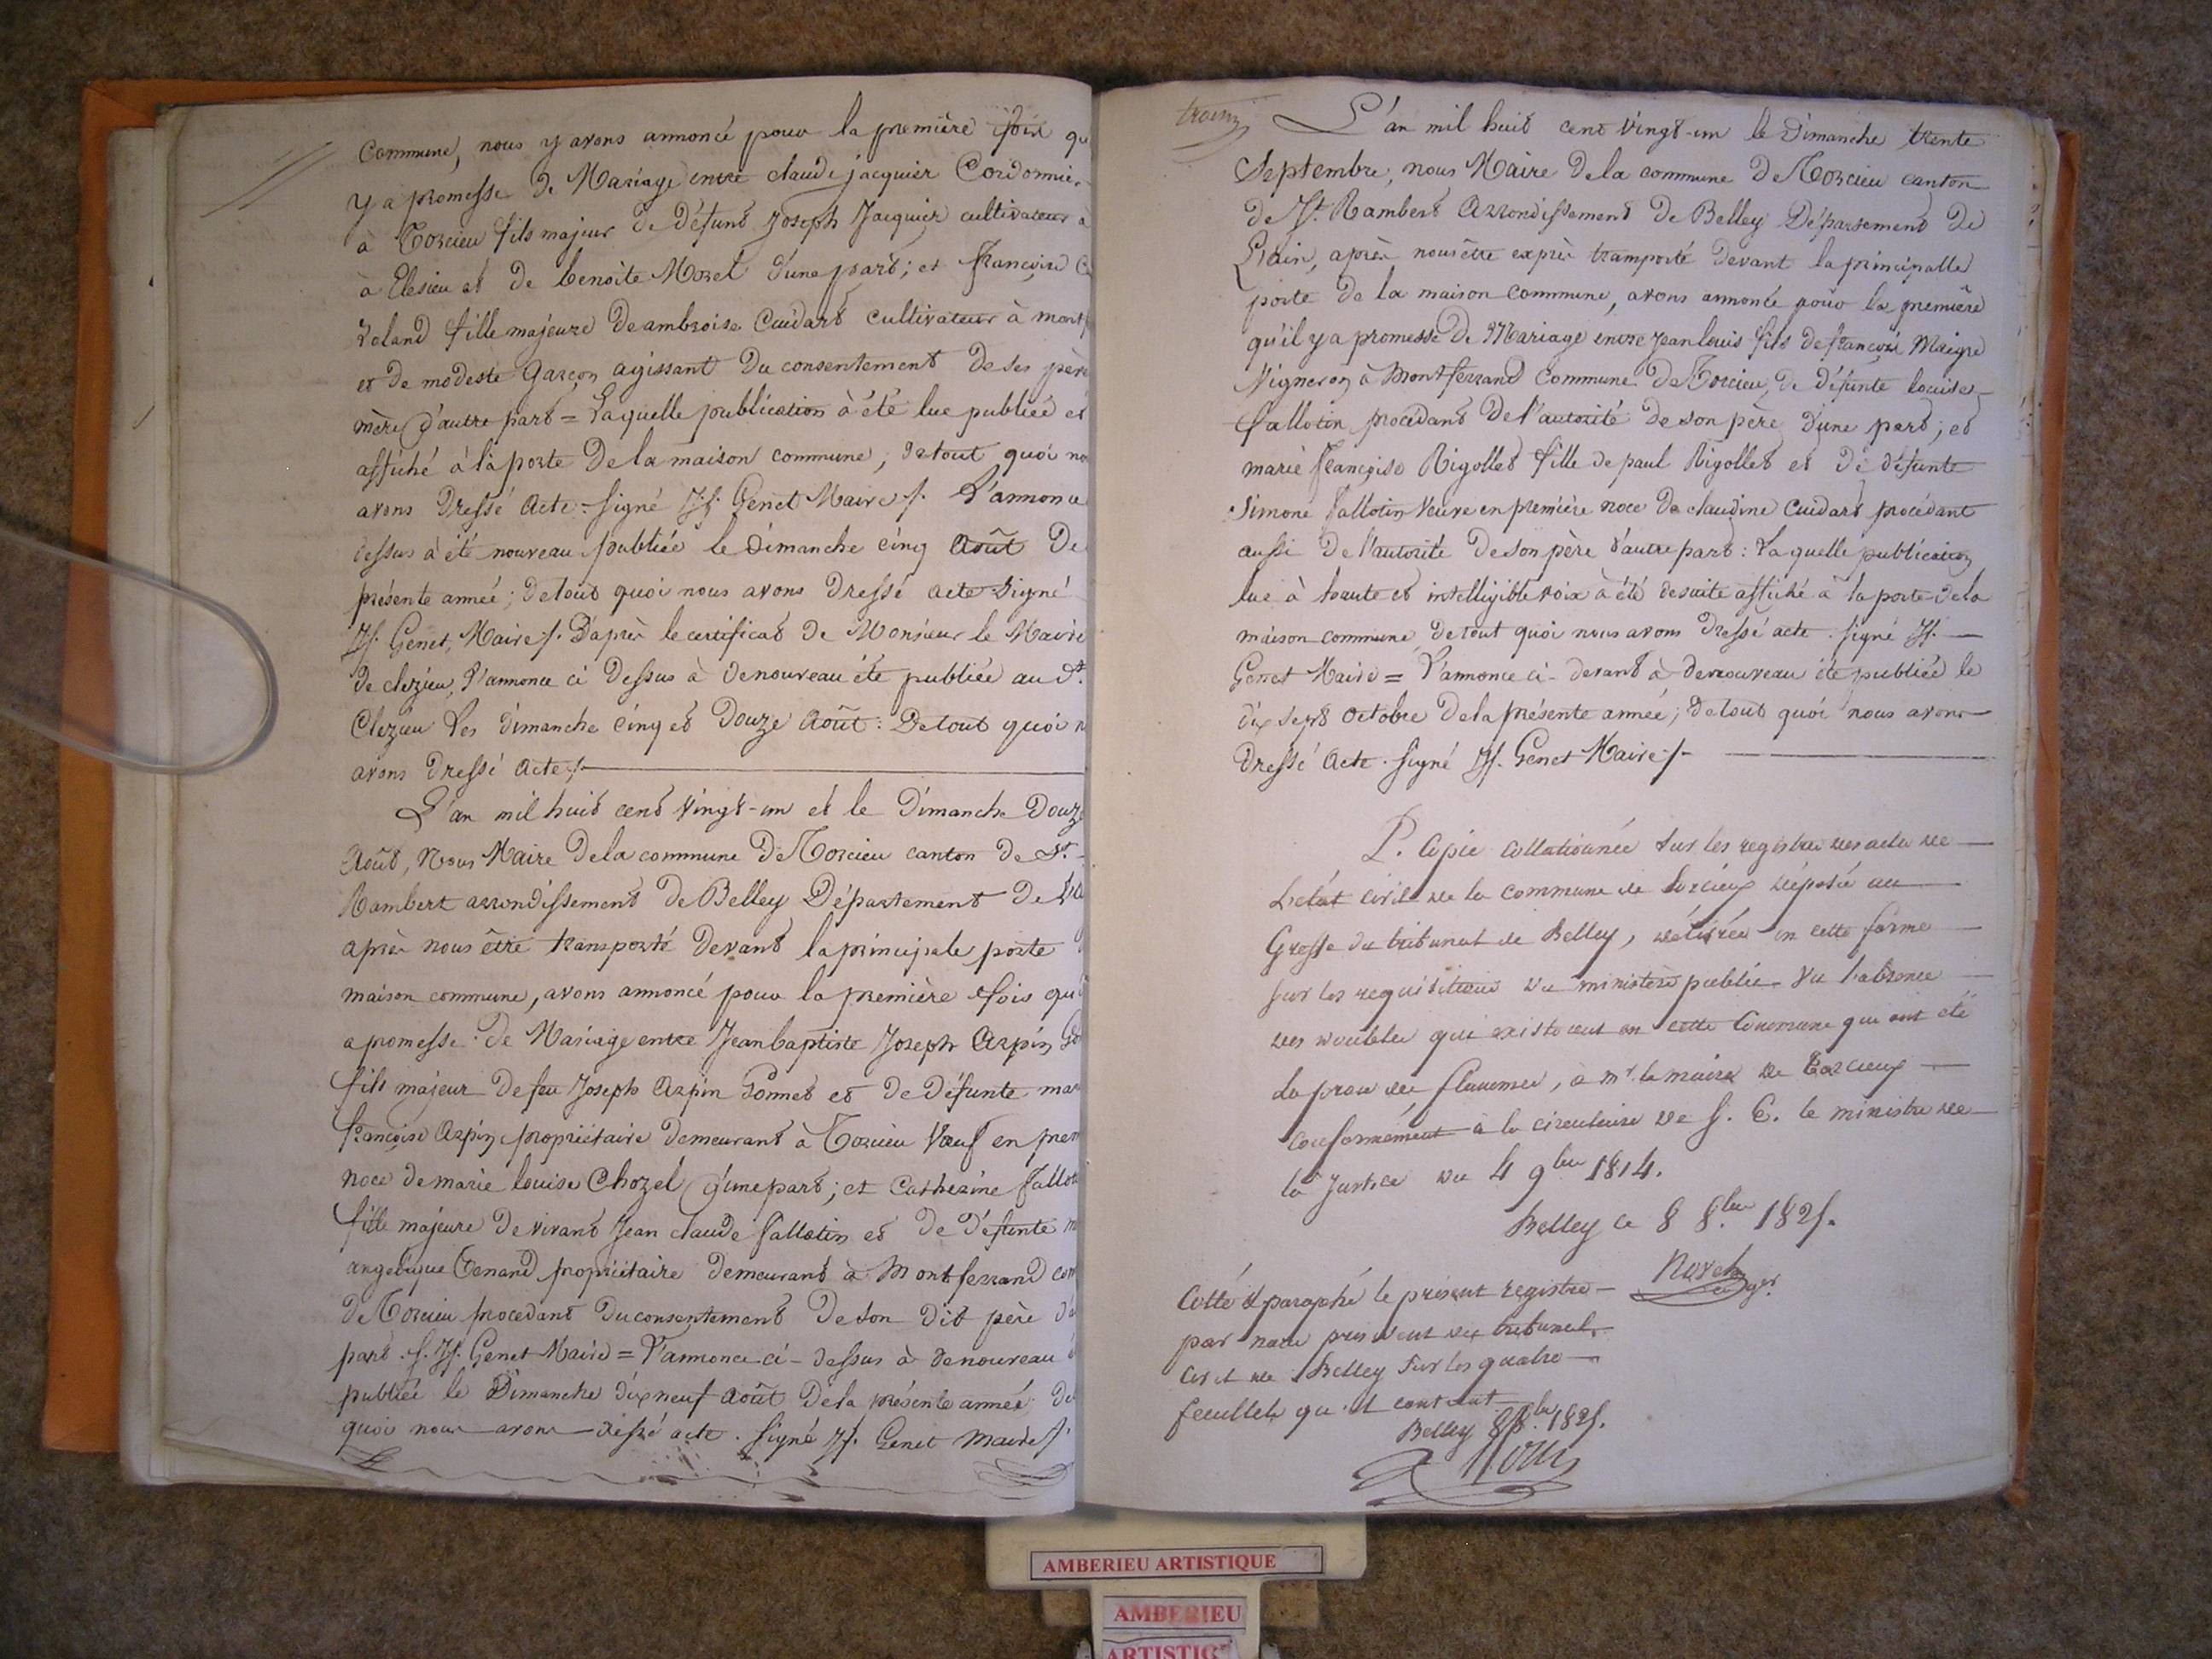 commune, nous y avons annoncé pour la première fois qu
y a promesse de Mariage entre claude jacquier Cordonnier
à Torcieu fils majeur de défunt Joseph Jacquier cultivateur à
à Clesieu et de benoite Morel d'une part; et françoise
fille majeure de ambroise Cuidart cultivateur à mont
et de modeste Garçon agissant du consentement de ses père
mère d'autre part = Laquelle publication à été lue publiée et
affiché à la porte de la maison commune; de tout quoi no
avons dressé acte = signé Jh. Genet Maire /. L'annonce
dessus à été nouveau publiée le dimanche cinq Août De
présente année; de tout quoi nous avons dressé acte signé
Jh. Genet, Maire /. D'après le certificat de Monsieur le Maire
de clezieu, l'annonce ci dessus à de nouveau été publiée au St.
Clezieu les dimanche cinq et douze Août: De tout quoi n
avons dressé acte /.
L'an mil huit cent vingt-un et le dimanche Douze
Août, Nous Maire de la commune de Torcieu canton de St.
Rambert arrondissement de Belley Département de
après nous être transporté devant la principale porte
maison commune, avons annoncé pour la première fois qu'i
a promesse de Mariage entre Jean baptiste Joseph Arpin
fils majeur de feu Joseph Arpin Gonnet et de défunte mar
françoise Arpin propriétaire demeurant à Torcieu Veuf en prem
noce de marie louise Chozel d'une part; et Catherine fallot
fille majeure de vivant Jean claude fallotin et de défunte m
angelique Tenand propriétaire demeurant à Montferrand com
de Torcieu procedant du consentement de son dit père d'a
part. S. Jh. Genet Maire = L'annonce ci-dessus à de nouveau é
publiée le Dimanche dix neuf Août de la présente année; de
quoi nous avons dressé acte. signé Jh. Genet Maire /.
L'an mil huit cent vingt-un le Dimanche trente
Septembre, nous Maire de la commune de Torcieu canton
de St. Rambert Arrondissement de Belley Département de
L'ain, après nous être exprès tramporté devant la principalle
porte de la maison commune, avons annoncé pour la première
qu'il y a promesse de Mariage entre jean louis fils de françois Maigre
Vigneron à Montferrand Commune de Torcieu, de défunte louise
fallotin procedant de l'autorité de son père d'une part; et
marie françoise Rigollet fille de paul Rigollet et de défunte
Simone fallotin Veuve en première noce de claudine Cuidart procédant
aussi de l'autorité de son père d'autre part: Laquelle publication
lue à haute et intelligible voix à été de suite affiché à la porte de la
maison commune, de tout quoi nous avons dressé acte. signé Jh.
Genet Maire = L'annonce ci-devant à de nouveau été publiée le
dix sept octobre de la présente année; de tout quoi nous avons
dressé acte. signé Jh. Genet Maire /.
P. Copie collationnée sur les registres des actes de
l'état civil de la commune de torcieux déposé au
Greffe du tribunal de Belley, délivrée en cette forme
sur les requisitions du ministère public vu l'absence
des doubles qui existoient en cette Commune qui ont été
la proie des flammes, à mr. le maire de torcieux
conformément à la circulaire de S. E. le ministre de
la Justice du 4 9bre 1814.
Belley ce 8 8bre 1825.
Cotté & paraphé le présent registre
par nous président du tribunal
civil de Belley sur les quatre
feuillets qu'il contient
Belley 8 8bre 1825.
AMBERIEU ARTISTIQUE
AMBERIEU
ARTISTIQ